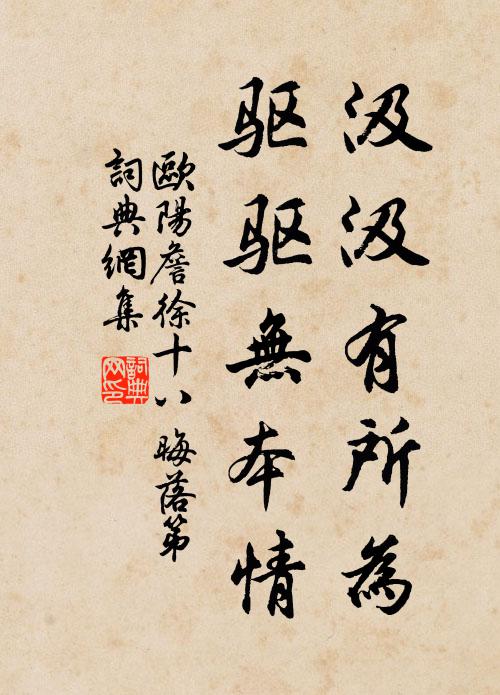 汲汲有所為
驱驱無本情
歐陽詹徐十八 晦落第
詞典網集
詞典网印